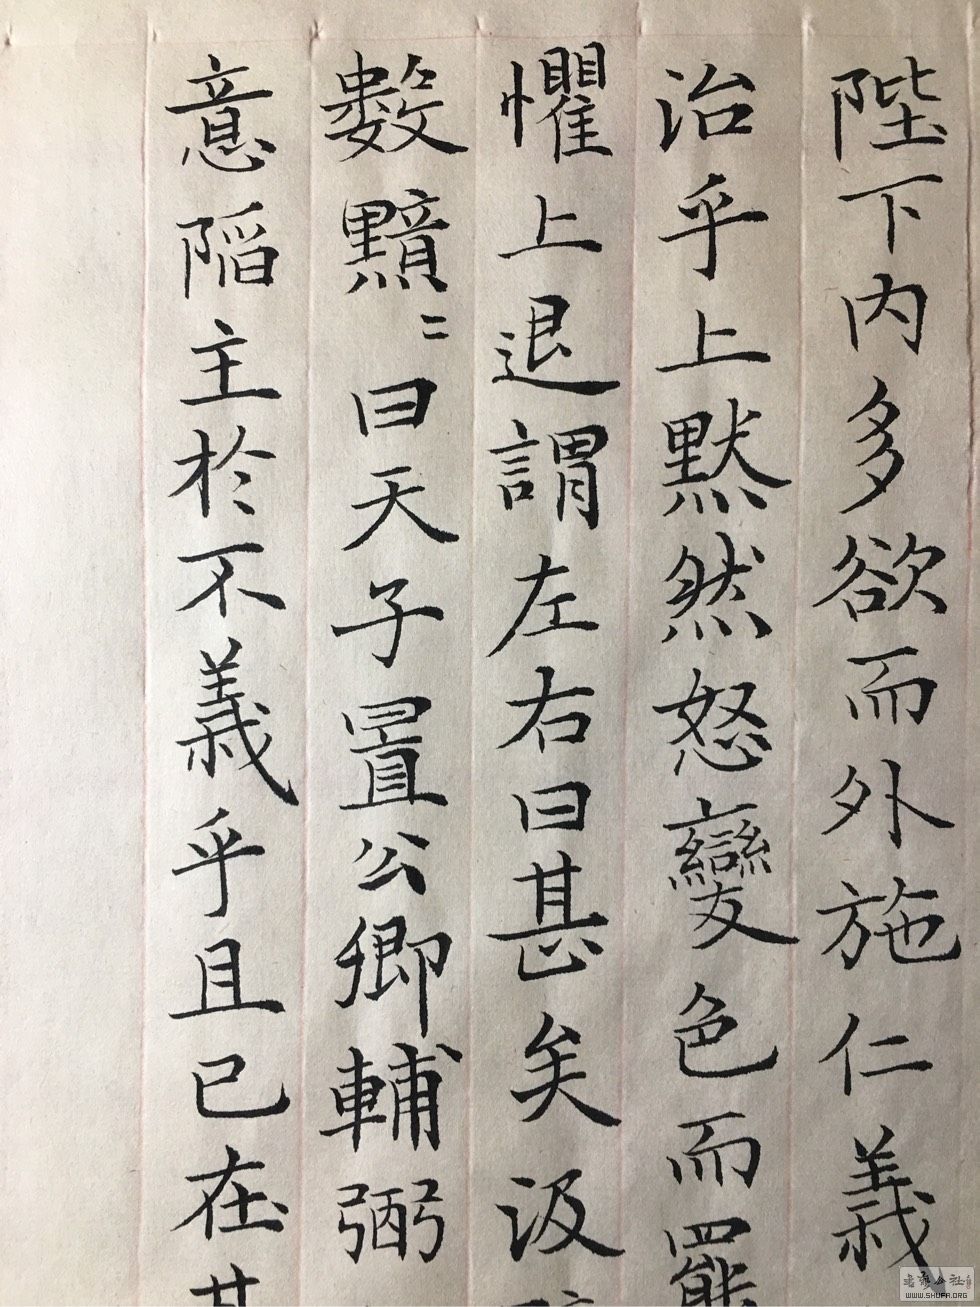 陛下內多欲而外施仁義
治乎上黙然怒變色而罷
懼上退謂左右曰甚矣汲
數黯〻曰天子置公卿輔弼
意陷主於不義乎且已在其
書艺公社
WWW.SHUFA.ORG